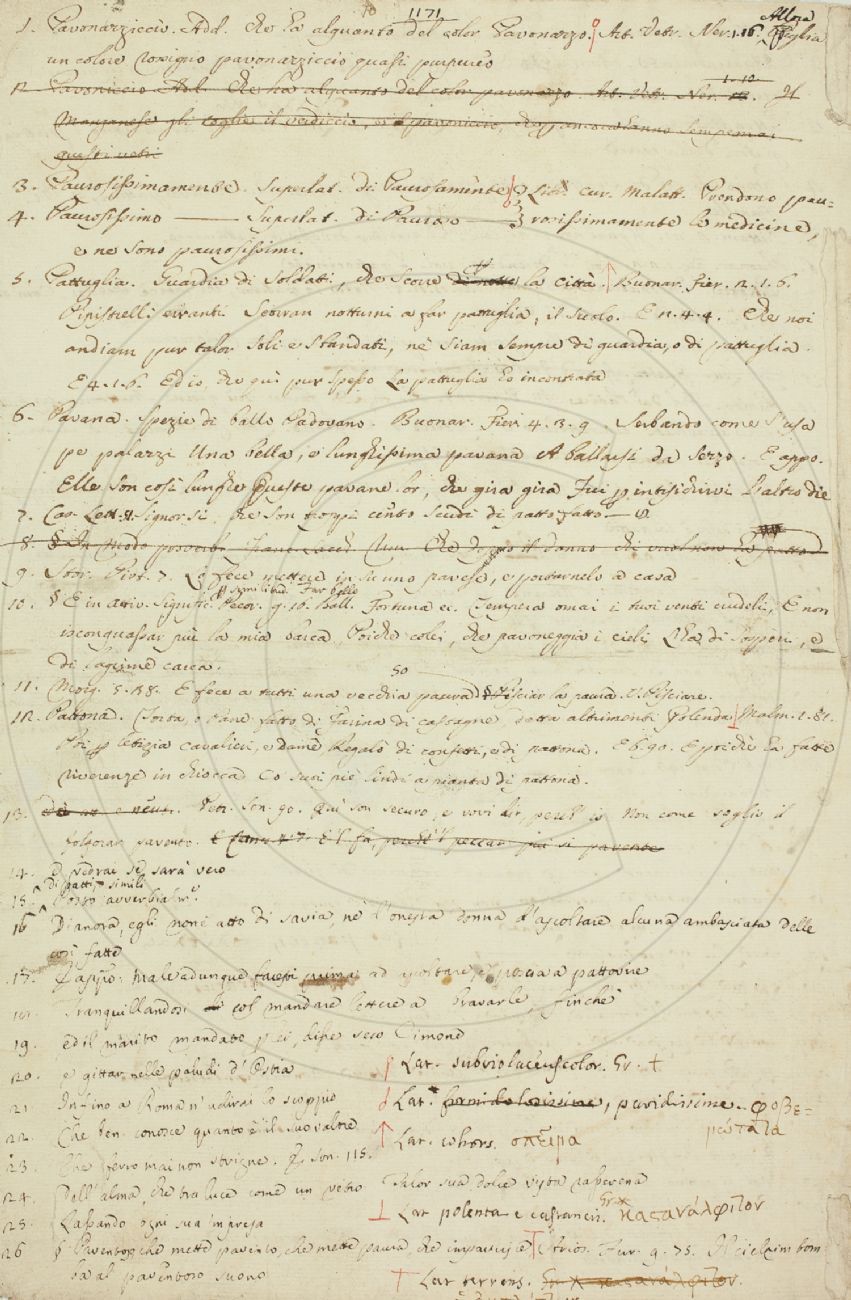 1171
1. Pavonazziccio. Add. Che ha alquanto del color Pavonazzo. Art. Vetr. Ner. 1. 16. Allora piglia
un colore rossigno pavonazziccio quasi purpureo
2. Pavoniccio Add. Che ha alquanto del color pavonazzo. Art. Vetr. Ner. 1. 10. Il
Manganese gli toglie il verdiccio, e il pavoniccio, che
questi vetri
3. Paurosissimamente. Superlat. di Paurosamente Libr. cur. Malatt. Prendono pau=
4. Paurosissimo — Superlat. di Pauroso — rosissimamente le medicine,
e ne sono paurosissimi.
5. Pattuglia. Guardia di Soldati, che scorre di notte la Città. Buonar. Fier. 2. 1. 6.
Pipistrelli erranti Scorran notturni a far pattuglia, E 2. 4. 4. Che noi
andiam pur talor soli e sbandati, nè siam sempre di guardia, o di pattuglia.
E 4. 1. 6. Ed io, che qui pur spesso La pattuglia ho incontrata
6. Pavana. Spezie di ballo Padovano. Buonar. Fier. 4. 3. 9. Serbando come s'usa
pe palazzi Una bella, e lunghissima pavana A ballarsi da sezzo. E appo.
Elle son così lunghe Queste pavane lor, che gira gira Fui p intisichirvi l'altro die
7. Car. Lett. Signor sì, che son troppi cento scudi di patto fatto
8. § In modo proverb.
9. Stor. Pist. 7. Lo fece mettere in su uno pavese, e portarnelo a casa
10. § E in attiv. signific. Pecor. g. 10. Ball. Fortuna ec. Tempera omai i tuoi venti crudeli, E non
inconquassar più la mia barca, Poichè colei, che pavoneggia i cieli, L'ha di sospiri, e
di lagrime carca.
11. Morg. 5. 38. 50 E fece a tutti una vecchia paura § Pisciar la paura. V. Pisciare.
12. Pattona. Torta, o Pane fatto di farina di castagne, detta altrimenti Polenda. Malm. 1. 81.
Poi letizia cavalieri, e dame Regalò di confetti, e di pattona. E 6. 90. E poichè ha fatte
riverenze in chiocca Co suoi piè lindi a pianta di pattona.
13. Petr. Son. 90. Qui son securo, e vovi dir, perch' io Non come soglio il
folgorar pavento. E canz. E 'l fa, perchè 'l peccar più si pavente
14. E vedrai se sarà vero
Di patti simili
15. Posto avverbialm.
16 Dianora, egli non è atto di savia, nè d'onesta donna d'ascoltare alcuna ambasciata delle
così fatte
17. E appo. Male adunque facesti prima ad ascoltare, e poscia a pattovire
18. Tranquillandosi col mandare lettere a bravarle, finchè
19. Ed il marito mandato p lei, disse seco Cimone
20. e gittar nelle paludi d'Ostia
21 Infino a Roma n' udirai lo scoppio
22. Che ben conosce quanto è il suo valore
23. Che ferro mai non strigne. Son. 115.
24. Dell' alma, che traluce come un vetro Talor sua dolce vista rasserena
25. Lassando ogni sua impresa
26 § Paventoso che mette pavento, che mette paura, che impaurisce Arios. Fur. 9. 75. Il ciel rim bom
ba al paventoso suono
Lat. subviolaceus color. Gr. +
Lat. formidolosissime, pavidissime. φοβε=
ρώτατα
Lat. cohors. σπεῖρα
Lat polenta e castaneis. Gr.
Lat terrens.